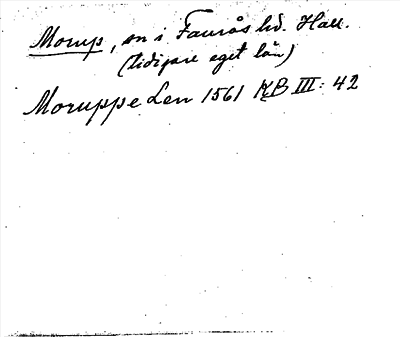 Morup, sn i Faurås hd. Hall.
(tidigare eget län)
Moruppe Len 1561 KB III: 42